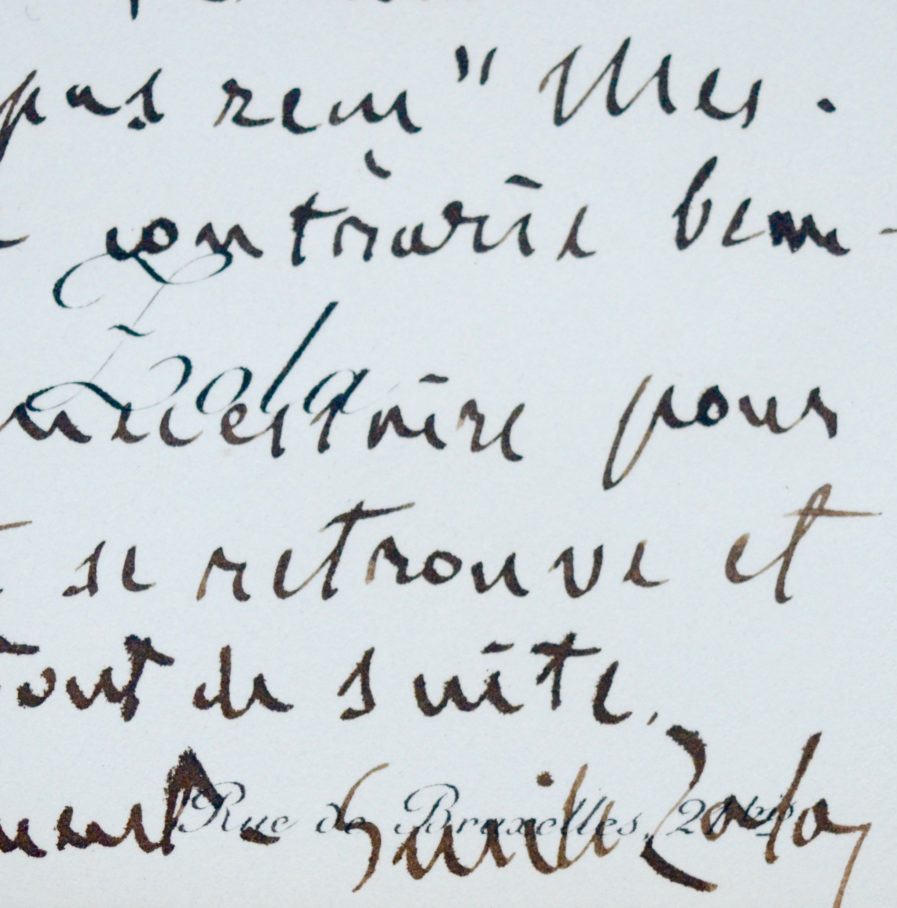 pas reçu" Mes.
contrarie beau-
Zola
nécessaire pour
se retrouve et
tout de suite.
Emile Zola
Rue de Bruxelles, 21 bis